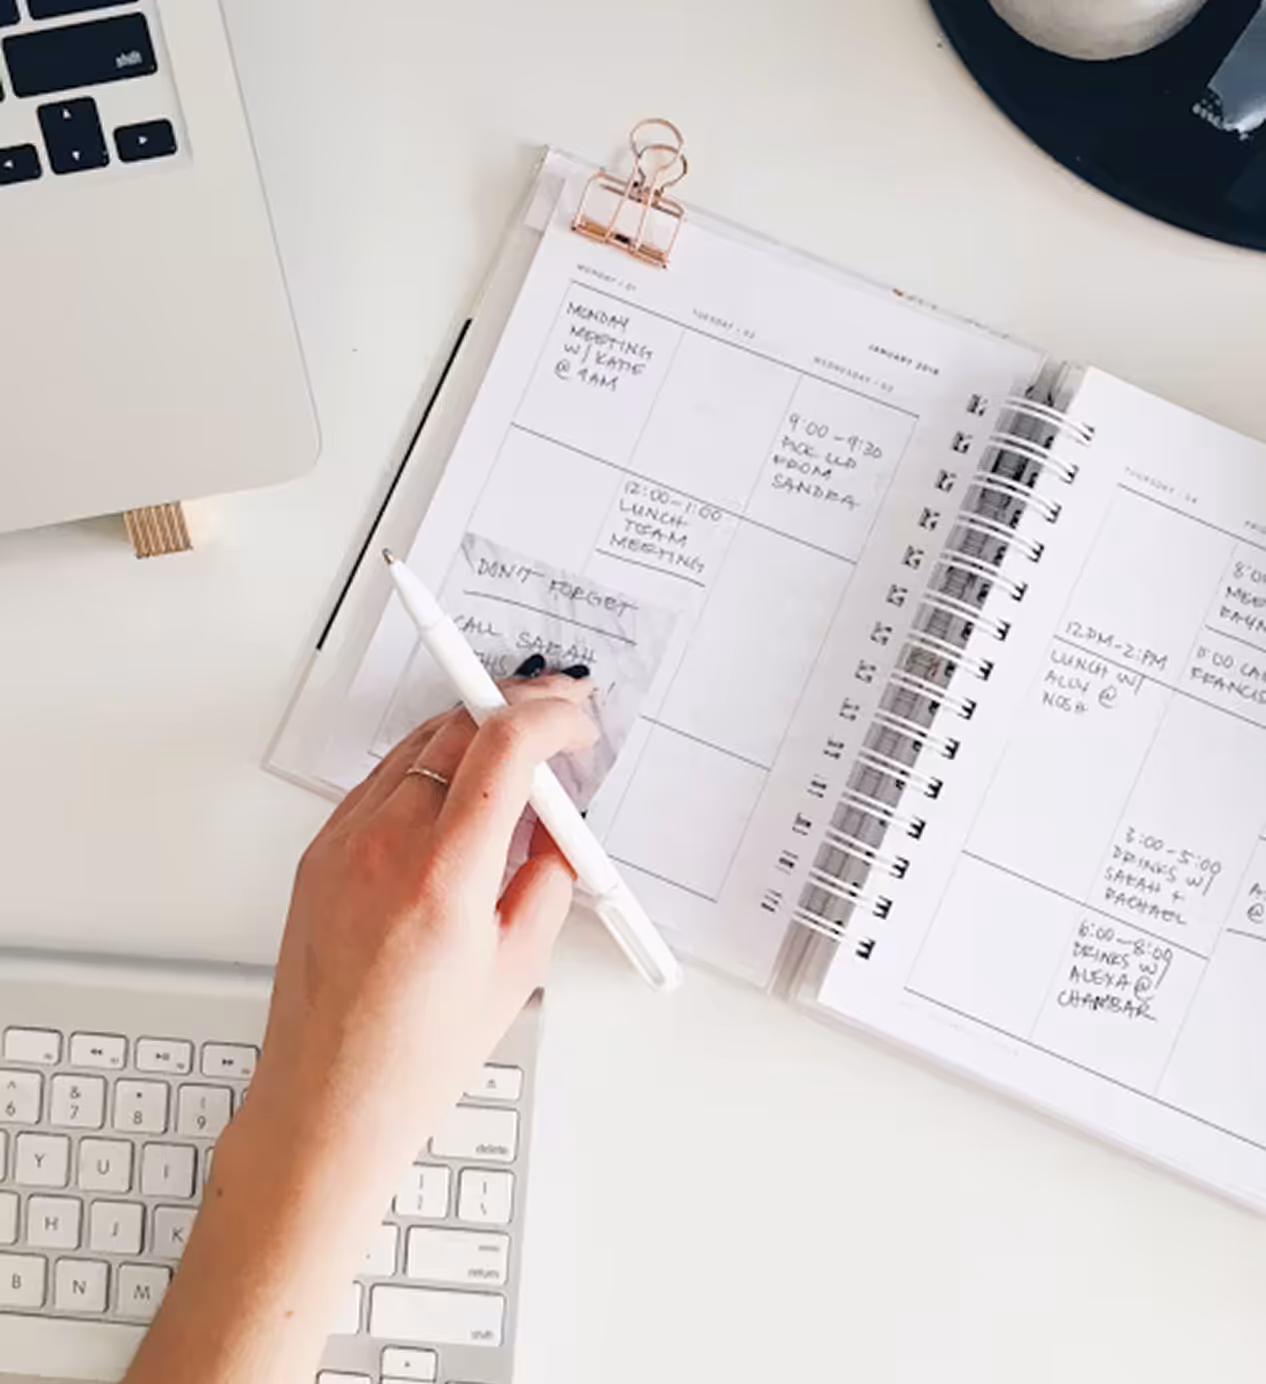 shift
MONDAY / 01
TUESDAY / 02
JANUARY 2018
WEDNESDAY / 03
MONDAY
MEETING
W/ KATIE
@ 9AM
9:00-9:30
PICK UP
FROM
SANDRA
12:00-1:00
LUNCH
TEAM
MEETING
DON'T FORGET
CALL SARAH
THIS
!
THURSDAY / 04
12PM-2:PM
LUNCH W/
ALLY @
NOSH
8:0
MEE
5:00 CA
FRANCIS
3:00-5:00
DRINKS W/
SARAH +
RACHAEL
6:00-8:00
DRINKS W/
ALEXA @
CHAMBAR
A
@
^ & * (
6 7 8 9
delete
Y U I
} |
] \
H J K
return
B N M
shift